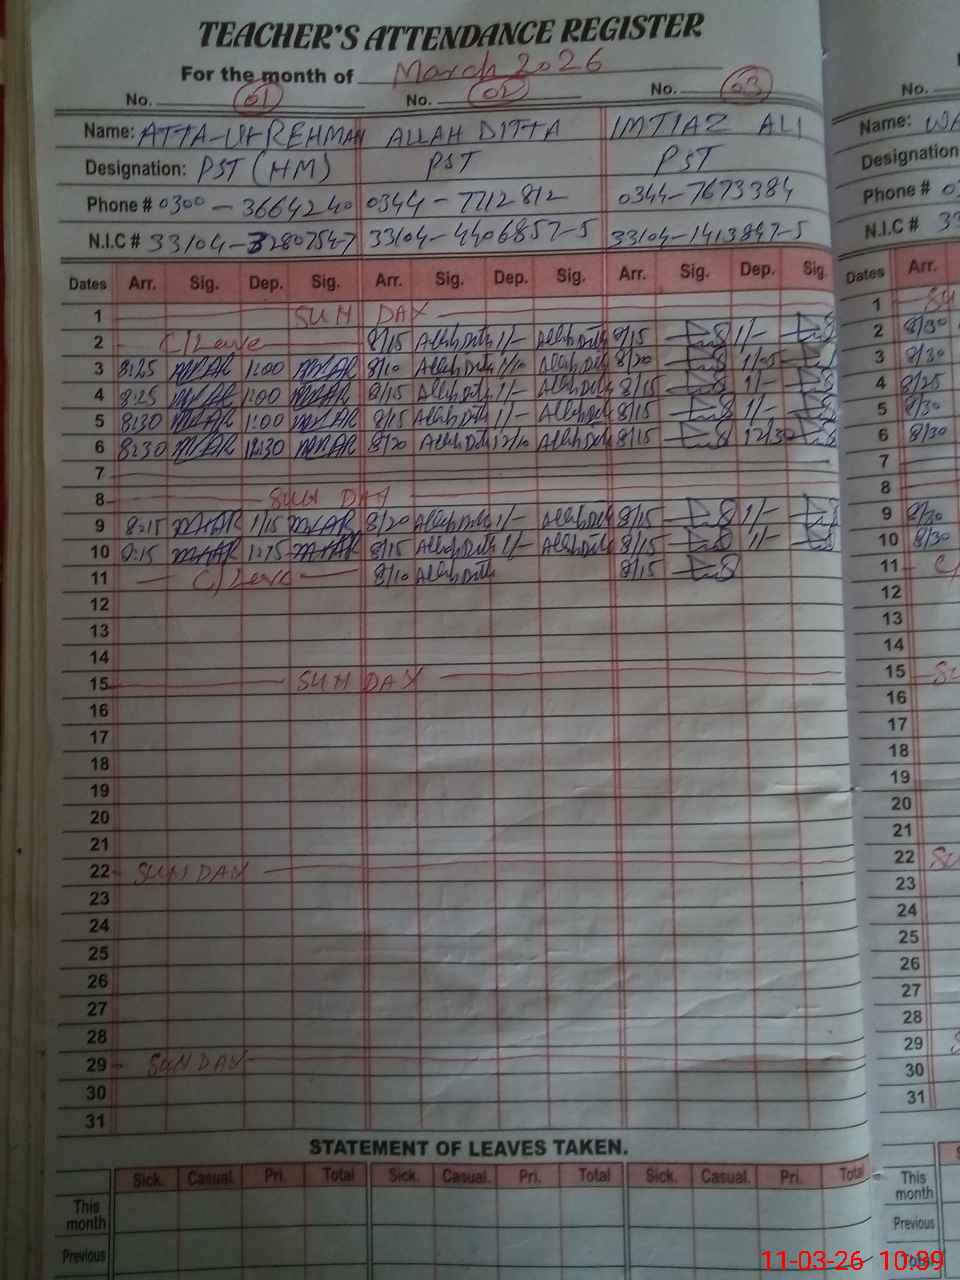 TEACHER'S ATTENDANCE REGISTER
For the month of March 2026
No. 01 No. 02 No. 03 No.
Name: ATTA-UR-REHMAN ALLAH DITTA IMTIAZ ALI Name:
Designation: PST (HM) PST PST Designation
Phone # 0300-3664240 0344-7712812 0344-7673384 Phone #
N.I.C # 33104-3280754-7 33104-4406857-5 33104-1413847-5 N.I.C # 33
Dates Arr. Sig. Dep. Sig. Arr. Sig. Dep. Sig. Arr. Sig. Dep. Sig. Dates Arr.
1 SUN DAY 1
2 C/Leave 8/15 Allah Ditta 1/- Allah Ditta 8/15 1/- 2 8/30
3 8:25 1:00 8/10 Allah Ditta 1/10 Allah Ditta 8/20 1/05 3 8/30
4 8:25 1:00 8/15 Allah Ditta 1/- Allah Ditta 8/15 1/- 4 8/25
5 8:30 1:00 8/15 Allah Ditta 1/- Allah Ditta 8/15 1/- 5 8/30
6 8:30 12:30 8/20 Allah Ditta 12/10 Allah Ditta 8/15 12/30 6 8/30
7 7
8 SUN DAY 8
9 8:15 1/15 8/20 Allah Ditta 1/- Allah Ditta 8/15 1/- 9 8/30
10 8:15 1:15 8/15 Allah Ditta 1/- Allah Ditta 8/15 1/- 10 8/30
11 C/Leave 8/10 Allah Ditta 8/15 11
12 12
13 13
14 14
15 SUN DAY 15
16 16
17 17
18 18
19 19
20 20
21 21
22 SUNDAY 22
23 23
24 24
25 25
26 26
27 27
28 28
29 SUNDAY 29
30 30
31 31
STATEMENT OF LEAVES TAKEN.
Sick. Casual. Pri. Total Sick. Casual. Pri. Total Sick. Casual. Pri. Total
This month This month
Previous Previous
Total
11-03-26 10:39